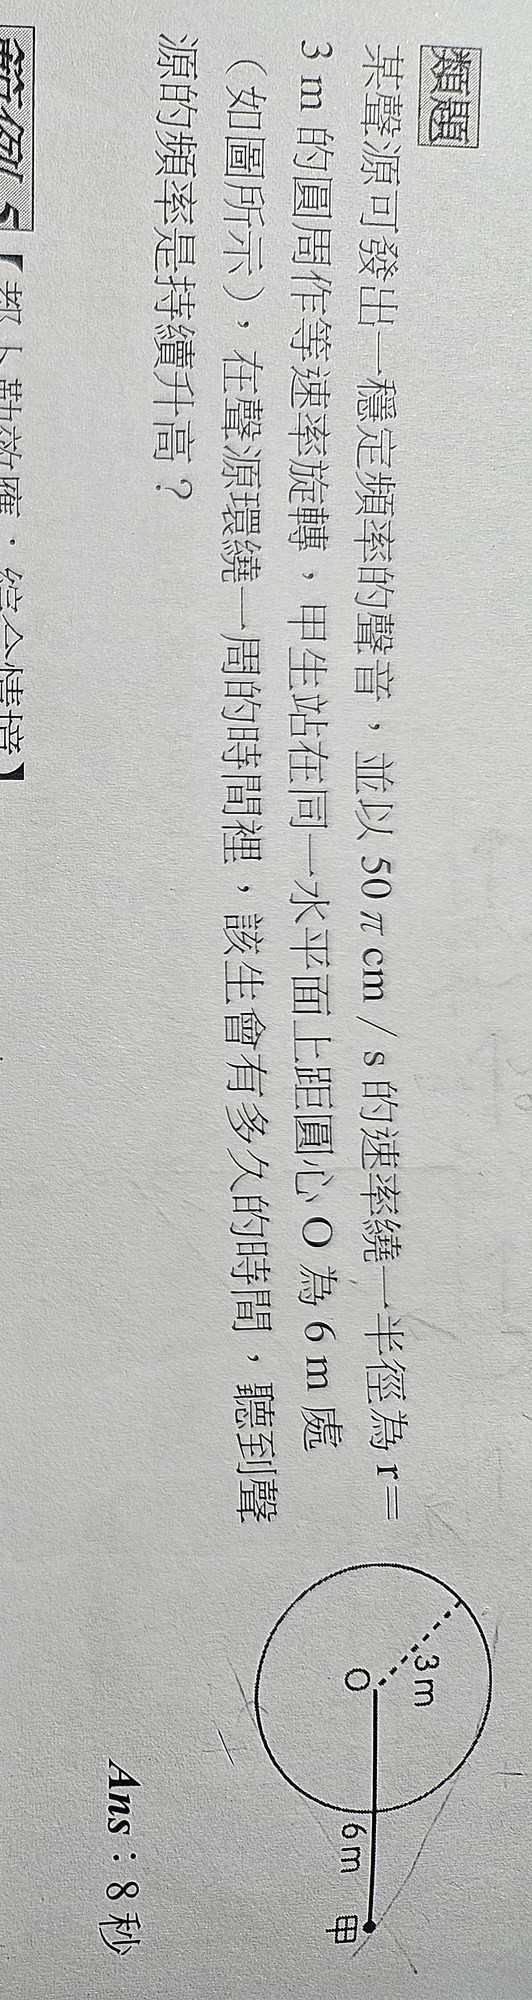 類題
某聲源可發出一穩定頻率的聲音，並以 50 π cm / s 的速率繞一半徑為 r =
3 m 的圓周作等速率旋轉，甲生站在同一水平面上距圓心 O 為 6 m 處
（如圖所示），在聲源環繞一周的時間裡，該生會有多久的時間，聽到聲
源的頻率是持續升高？
3 m
O
6 m
甲
Ans：8 秒
範例 5【都卜勒效應．綜合情境】